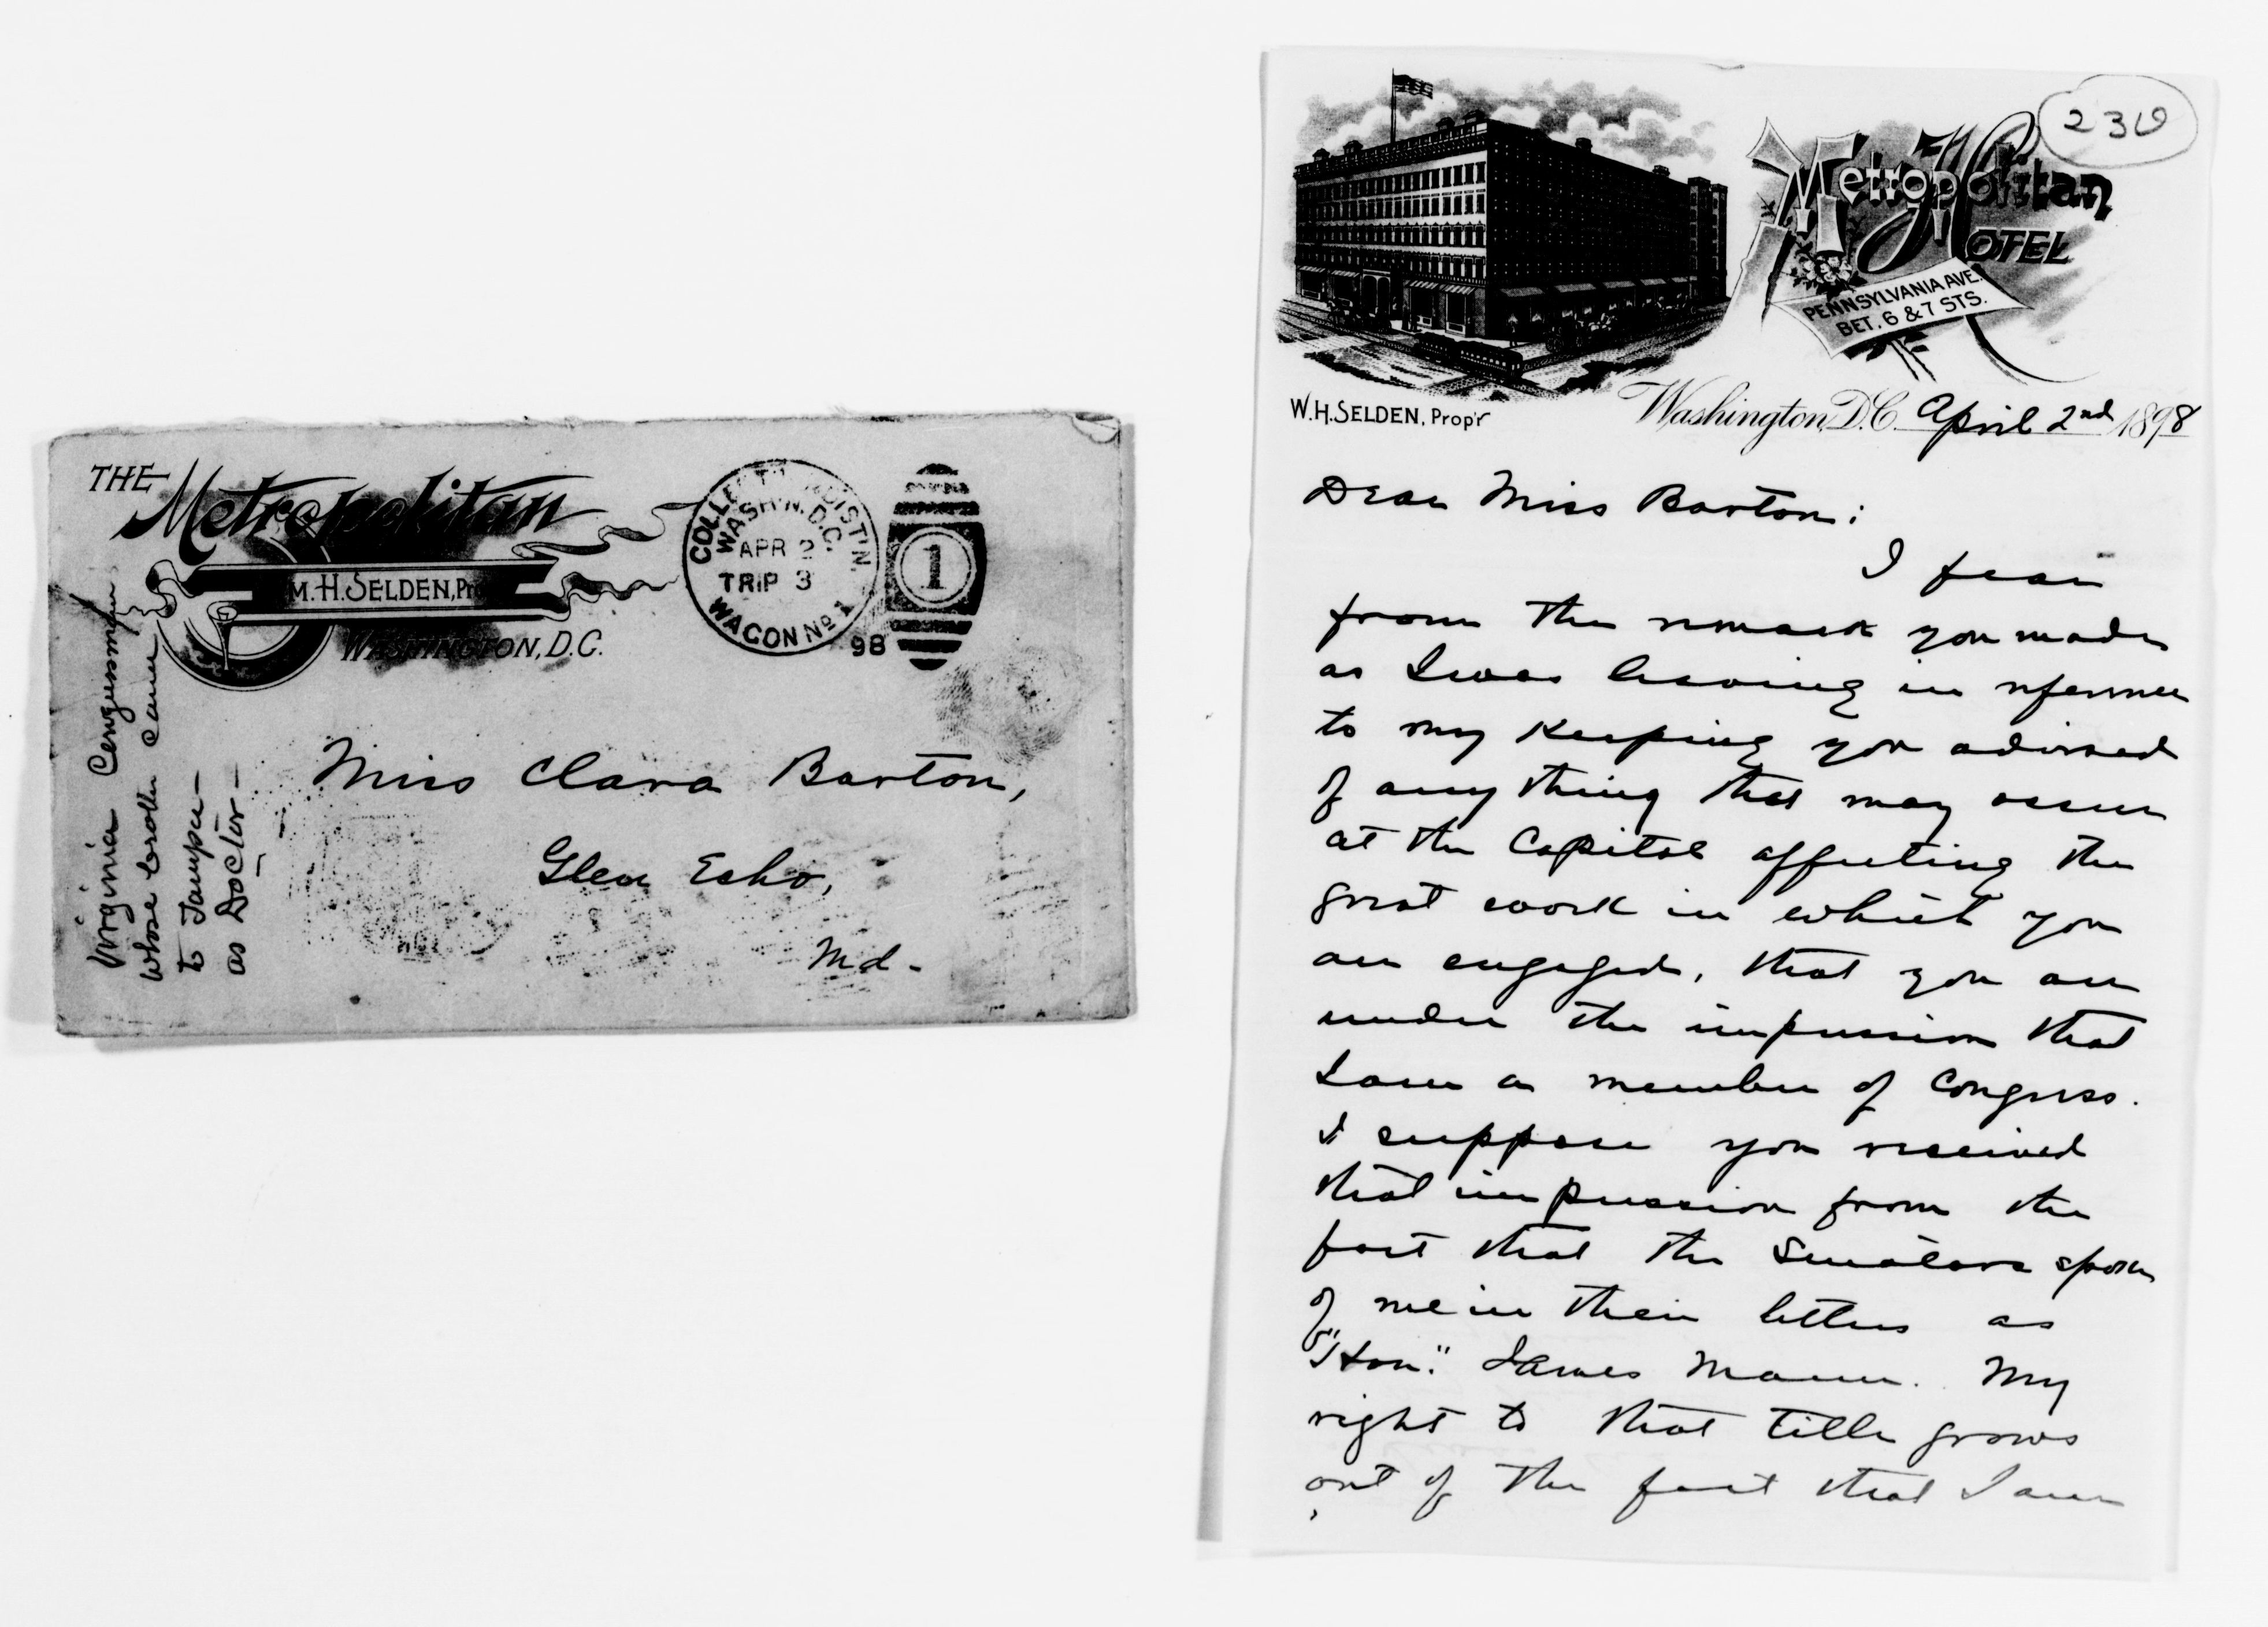 THE Metropolitan
M.H. SELDEN, Pr
WASHINGTON, D.C.
WASH'N. D.C.
APR 2
TRIP 3
WAGON No 1
98
1
Miss Clara Barton,
Glen Echo,
Md.
Virginia Congressman
whose brother came
to Tampa—
as Doctor—
230
Metropolitan
HOTEL
PENNSYLVANIA AVE.
BET. 6 & 7 STS.
W.H. SELDEN, Prop'r
Washington, D.C. April 2nd 1898
Dear Miss Barton:
I fear
from the remark you made
as I was leaving in reference
to my keeping you advised
of any thing that may occur
at the Capitol affecting the
great work in which you
are engaged, that you are
under the impression that
I am a member of Congress.
I suppose you received
that impression from the
fact that the Senators spoke
of me in their letters as
"Hon." James Mann. My
right to that title grows
out of the fact that I am